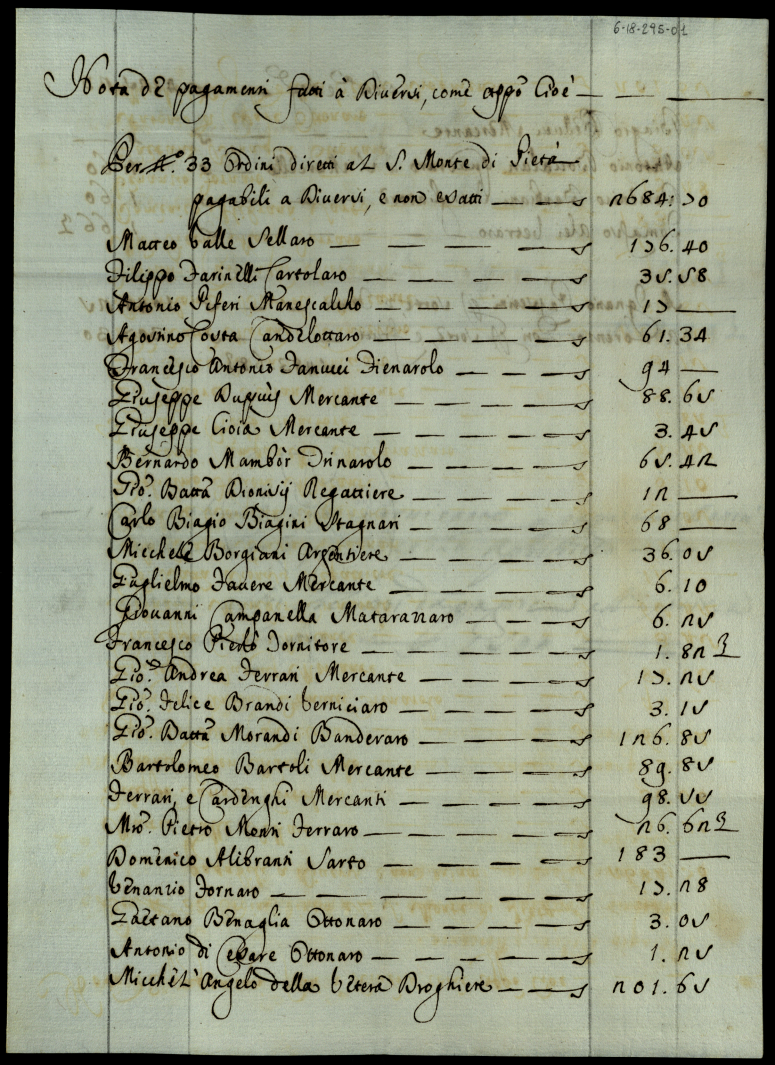 6-18-295-01
Nota de pagamenti fatti à Diversi, come appo Cioè
Per No. 33 Ordini diretti al S. Monte di Pietà
pagabili a Diversi, e non esatti — s 2684:70
Matteo Valle Sellaro — s 176.40
Filippo Farinelli Cartolaro — s 35.58
Antonio Piferi Manescalcho — s 17 —
Agostino Costa Candelottaro — s 61.34
Francesco Antonio Fanucci Fienarolo — s 94 —
Giuseppe Dupuis Mercante — s 88.65
Giuseppe Cioia Mercante — s 3.45
Bernardo Mambòr — s 65.42
Gio. Batta Dionisij Regattiere — s 12 —
Carlo Biagio Biagini Stagnari — s 68 —
Micchele Borgiani Argentiere — s 36.05
Guglielmo Favere Mercante — s 6.10
Giovanni Campanella Matarazzaro — s 6.25
Francesco Fornitore — s 1.82
Gio. Andrea Ferrari Mercante — s 17.25
Gio. Felice Brandi Verniciaro — s 3.15
Gio. Batta Morandi Banderaro — s 126.85
Bartolomeo Bartoli Mercante — s 89.85
Ferrari, e Cardenghi Mercanti — s 98.55
Mro. Pietro Monti Ferraro — s 26.62
Domenico Alibranti Sarto — s 183 —
Venanzio Fornaro — s 17.28
Gaetano Benaglia Ottonaro — s 3.05
Antonio di Cesare Ottonaro — s 1.25
Micchel' Angelo della Vetera Droghiere — s 201.65